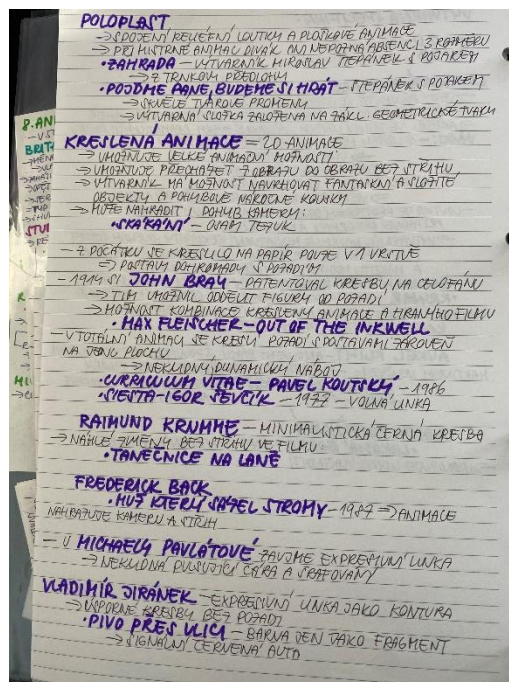 POLOPLAST
→ SPOJENÍ RELIÉFNÍ LOUTKY A PLOŠKOVÉ ANIMACE
→ PŘI MISTRNÉ ANIMACI DIVÁK ANI NEPOZNÁ ABSENCI 3. ROZMĚRU
• ZAHRADA – VÝTVARNÍK MIROSLAV ŠTĚPÁNEK S POJAREM
→ Z TRNKOVY PŘEDLOHY
• POJĎME PANE, BUDEME SI HRÁT – ŠTĚPÁNEK S POJAREM
→ SKVĚLÉ TVAROVÉ PROMĚNY
→ VÝTVARNÁ SLOŽKA ZALOŽENA NA ZÁKL. GEOMETRICKÉ TVARY
KRESLENÁ ANIMACE = 2D ANIMACE
→ UMOŽŇUJE VELKÉ ANIMAČNÍ MOŽNOSTI
→ UMOŽŇUJE PŘECHÁZET Z OBRAZU DO OBRAZU BEZ STŘIHU
→ VÝTVARNÍK MÁ MOŽNOST NAVRHOVAT FANTASKNÍ A SLOŽITÉ
OBJEKTY A POHYBOVĚ NÁROČNÉ KOUSKY
→ MŮŽE NAHRADIT I POHYB KAMERY:
• SKÁKÁNÍ – RYAN
– Z POČÁTKU SE KRESLILO NA PAPÍR POUZE V 1 VRSTVĚ
→ POSTAVY DOHROMADY S POZADÍM
– 1914 SI JOHN BRAY – PATENTOVAL KRESBY NA CELOFÁNU
→ TÍM UMOŽNIL ODDĚLIT FIGURY OD POZADÍ
→ MOŽNOST KOMBINACE KRESLENÝ ANIMACE A HRANÝHO FILMU
• MAX FLEISCHER – OUT OF THE INKWELL
– V TOTÁLNÍ ANIMACI SE KRESLÍ POZADÍ S POSTAVAMI ZÁROVEŇ
NA JEDNU PLOCHU
→ NEKLIDNÝ DYNAMICKÝ NÁBOJ
• CURRICULUM VITAE – PAVEL KOUTSKÝ – 1986
• SIESTA – IGOR ŠEVČÍK – 1977 – VOLNÁ LINKA
RAIMUND KRUMME – MINIMALISTICKÁ ČERNÁ KRESBA
→ NÁHLÉ ZMĚNY BEZ STŘIHU VE FILMU
• TANEČNICE NA LANĚ
FREDERICK BACK
• MUŽ KTERÝ SÁZEL STROMY – 1987 → ANIMACE
NAHRAZUJE KAMERU A STŘIH
– U MICHAELY PAVLÁTOVÉ ZAUJME EXPRESIVNÍ LINKA
→ NEKLIDNÁ PULSUJÍCÍ ČÁRA A ŠRAFOVÁNÍ
VLADIMÍR JIRÁNEK – EXPRESIVNÍ LINKA JAKO KONTURA
→ ÚSPORNÉ KRESBY BEZ POZADÍ
• PIVO PŘES ULICI – BARVA JEN JAKO FRAGMENT
→ SIGNÁLNÍ ČERVENÁ AUTO